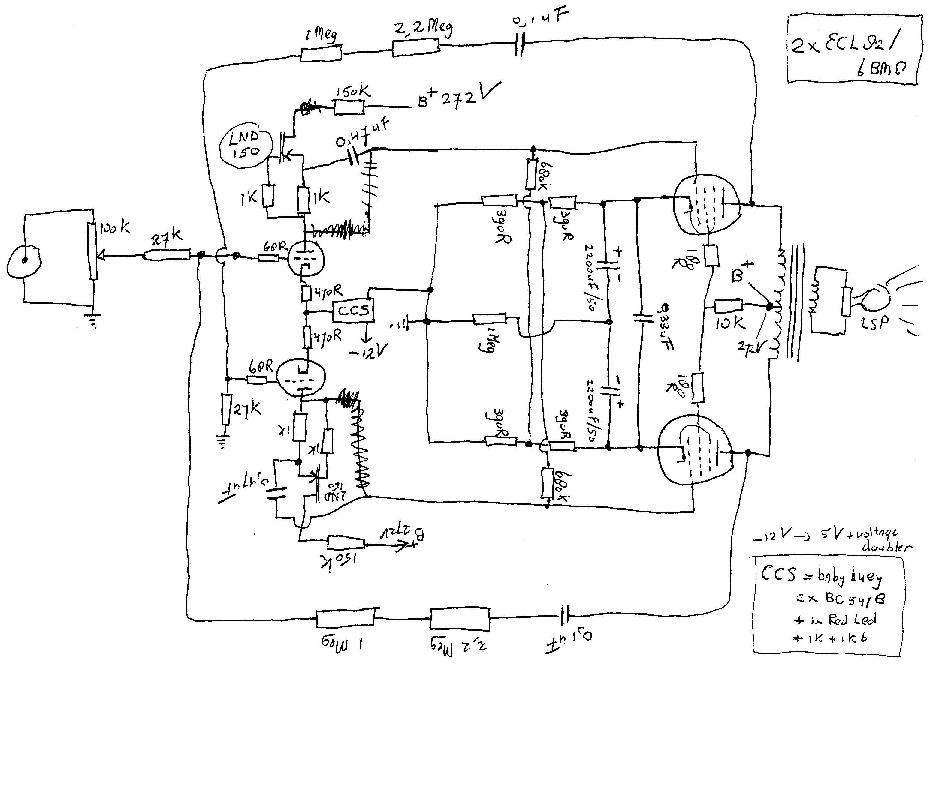 1Meg
2,2Meg
0,1uF
2x ECL82/
6BM8
150K
B+ 272V
LND
150
0,47uF
1K
1K
680K
100K
27K
68R
390R
390R
470R
CCS
-12V
470R
2200uF/50
1Meg
0,33uF
100
R
+B
10K
272V
LSP
68R
27K
100
R
2200uF/50
1K
1K
390R
390R
680K
0,47uF
LND
150
B+
272V
150K
-12V → 5V + voltage
doubler
CCS = baby huey
2x BC547B
+ in Red Led
+ 1K + 1K6
1 Meg
2,2 Meg
0,1uF